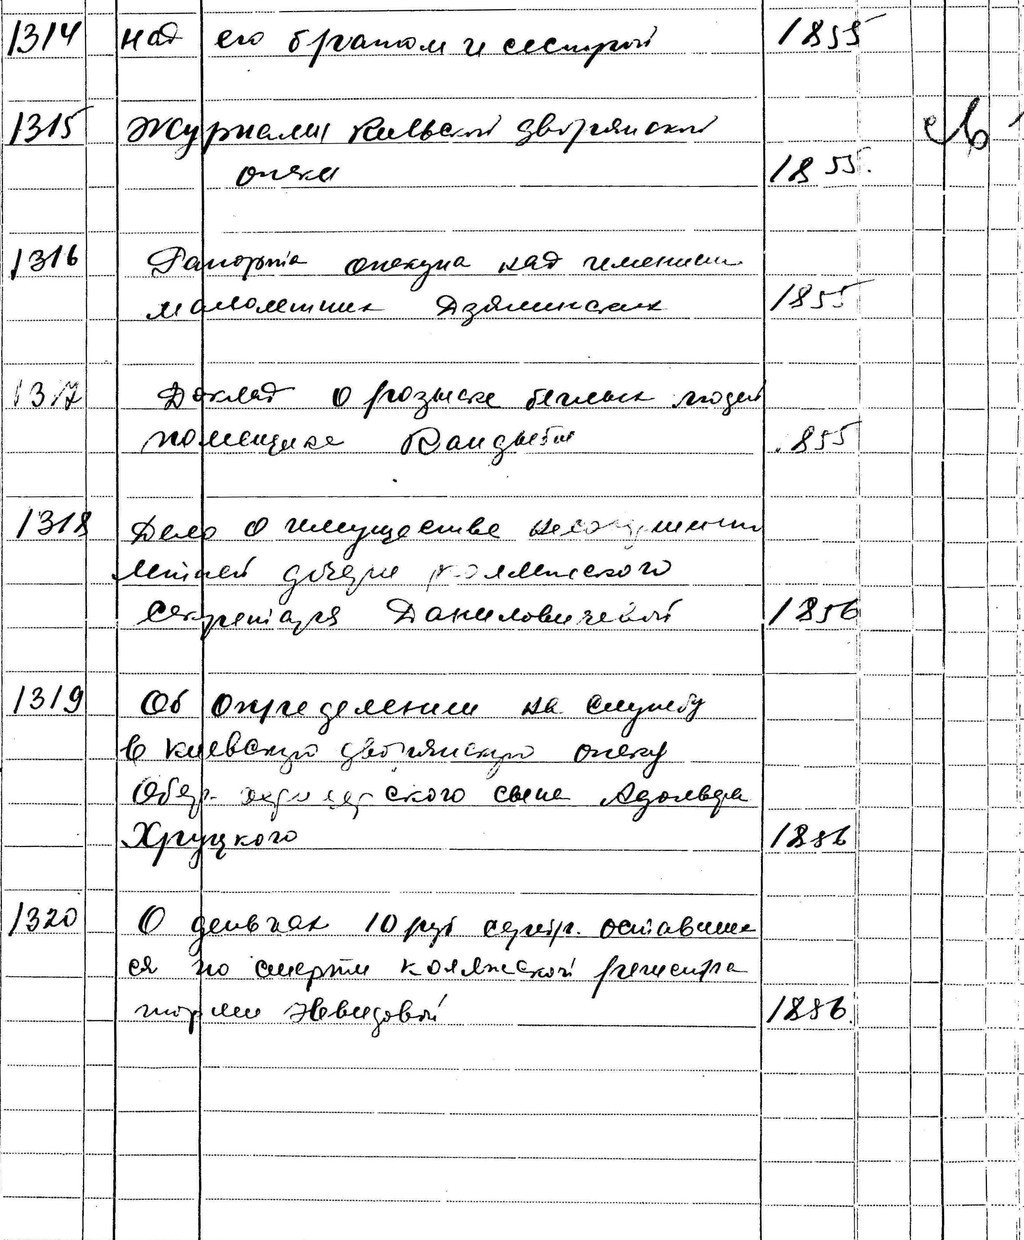 1314 над его братом и сестрой 1855
1315 Журналы Киевской дворянской
опеки 1855.
1316 Рапорта опекуна над имением
малолетних Дзялинских 1855
1317 Доклад о розыске беглых людей
помещика 855
1318 Дело о имуществе несовершенно
летней дочери коллежского
секретаря Даниловичевой 1856
1319 Об определении на службу
в киевскую дворянскую опеку
Обер-офицерского сына Адольфа
Хруцкого 1856
1320 О деньгах 10 руб серебр. оставше
ся по смерти коллежской регистра
торши Невидовой 1856.